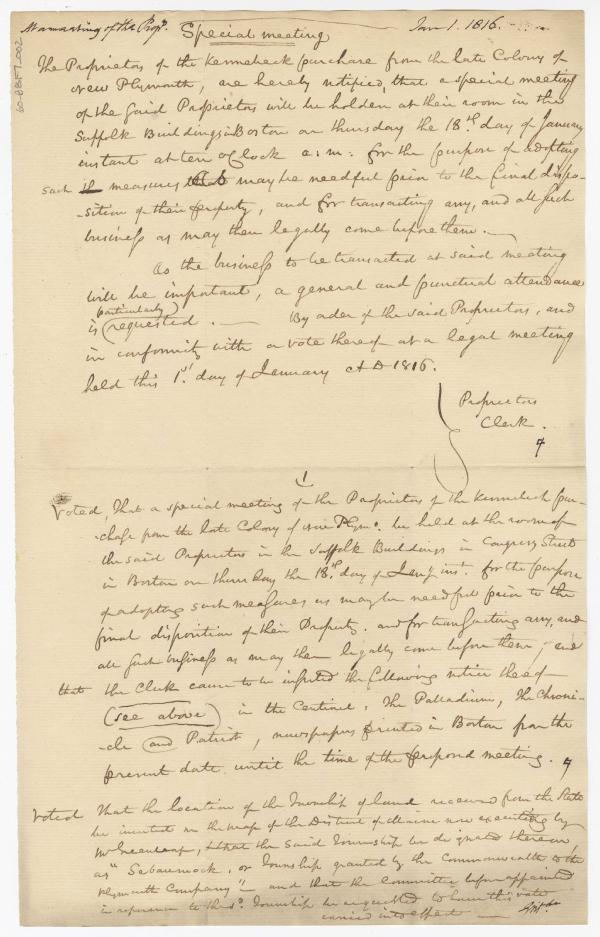 At a meeting of the Prop.rs Special meeting Jan 1. 1816.
60-88F7-002
The Proprietors of the Kennebeck purchase from the late Colony of
New Plymouth, are hereby notified, that a special meeting
of the said Proprietors will be holden at their room in the
Suffolk Buildings in Boston on thursday the 18.th day of January
instant at ten o Clock a: m: for the purpose of adopting
such measures as may be needful prior to the final dispo-
-sition of their property, and for transacting any, and all such
business as may then legally come before them. —
As the business to be transacted at said meeting
will be important, a general and punctual attendance
is (particularly) requested. — By order of the said Proprietors, and
in conformity with a vote thereof at a legal meeting
held this 1.st day of January A D 1816.
Proprietors
Clerk.
1
Voted, That a special meeting of the Proprietors of the Kennebeck pur-
-chase from the late Colony of New Plymo. be held at the room of
the said Proprietors in the Suffolk Buildings in Congress Street
in Boston on thursday the 18.th day of Jan.y inst. for the purpose
of adopting such measures as may be needful prior to the
final disposition of their Property, and for transacting any, and
all such business as may then legally come before them; and
that the Clerk cause to be inserted the following notice thereof
(see above) in the Centinel, The Palladium, The Chroni-
-cle (and) Patriot, newspapers printed in Boston from the
present date until the time of the proposed meeting.
Voted That the location of the Township of land received from the State
be inserted on the map of the District of Maine now executing by
Mr Greenleaf, & that the said Township be designated thereon
as "Sebaumock, or Township granted by the Commonwealth to the
Plymouth Company" and that the Committee before appointed
in reference to the sd. Township be requested to have this vote
carried into effect —